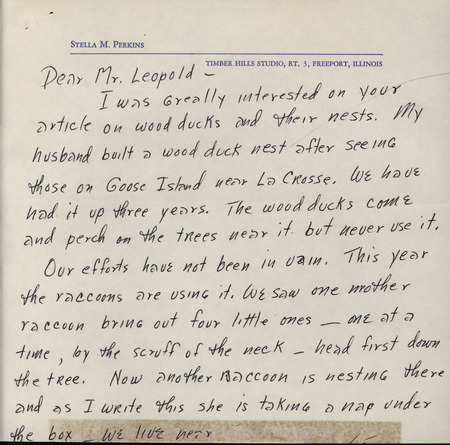 STELLA M. PERKINS
TIMBER HILLS STUDIO, RT. 3, FREEPORT, ILLINOIS
Dear Mr. Leopold –
I was greally interested on your
article on wood ducks and their nests. My
husband built a wood duck nest after seeing
those on Goose Island near La Crosse. We have
had it up three years. The wood ducks come
and perch on the trees near it but never use it.
Our efforts have not been in vain. This year
the raccoons are using it. We saw one mother
raccoon bring out four little ones – one at a
time, by the scruff of the neck – head first down
the tree. Now another Raccoon is nesting there
and as I write this she is taking a nap under
the box – We live near